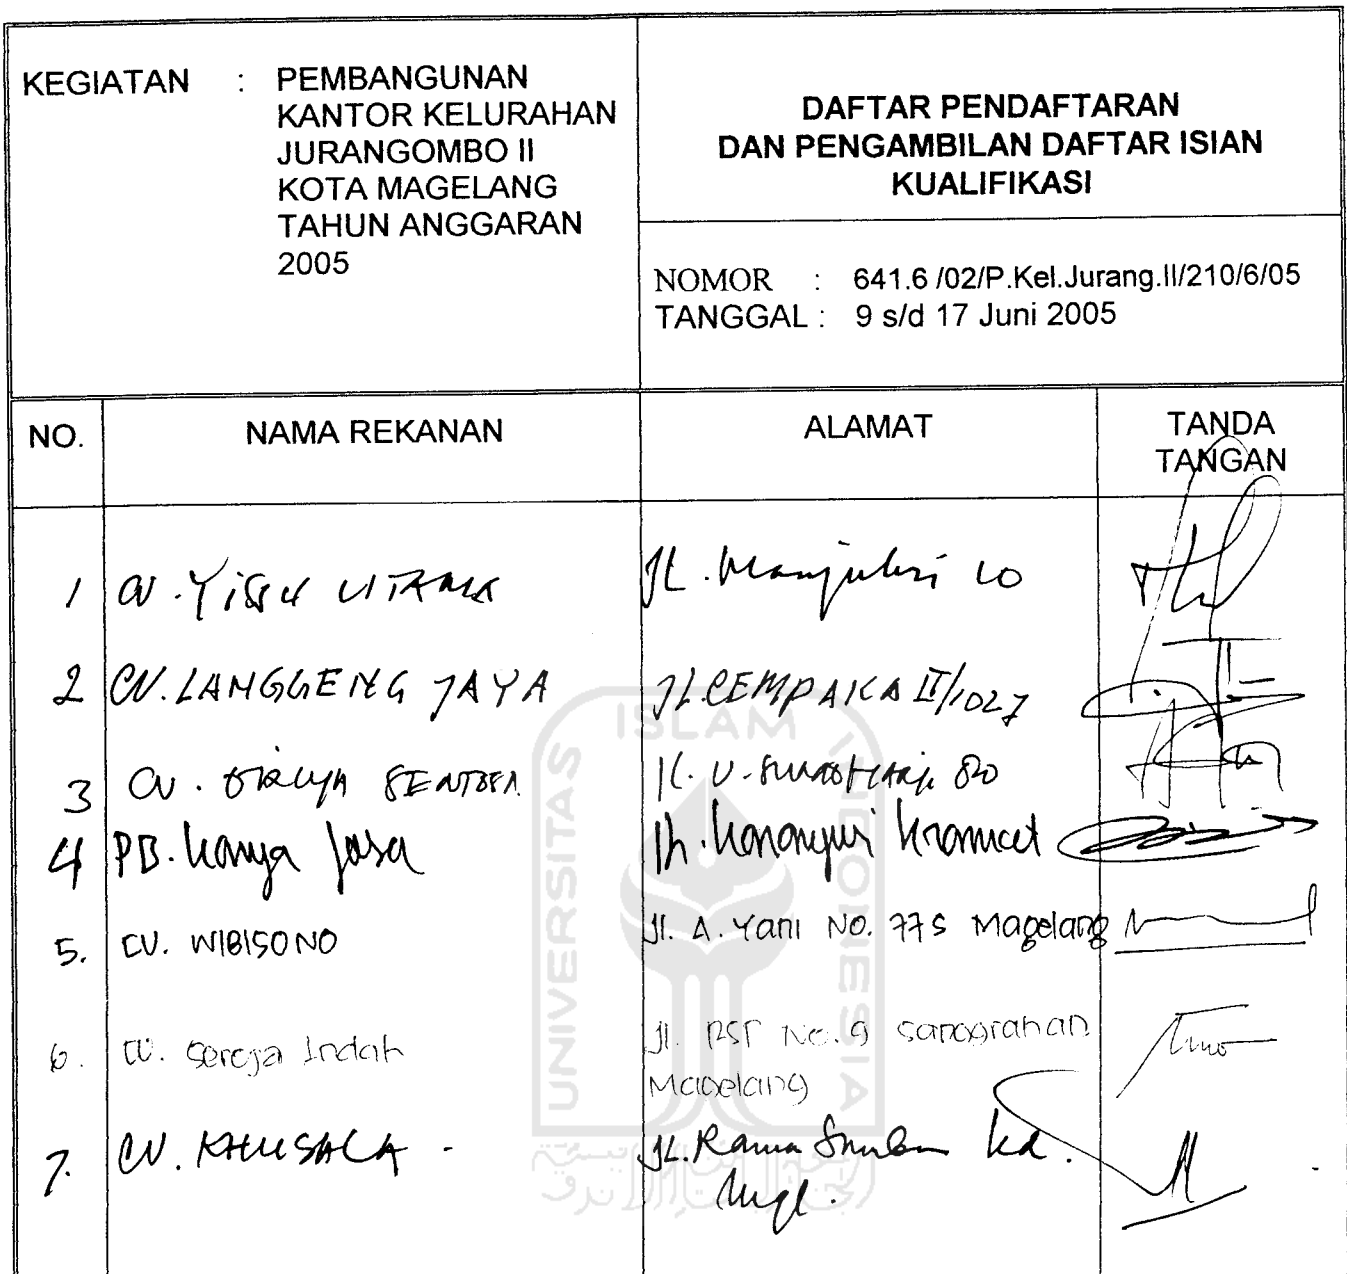 KEGIATAN : PEMBANGUNAN
KANTOR KELURAHAN
JURANGOMBO II
KOTA MAGELANG
TAHUN ANGGARAN
2005
DAFTAR PENDAFTARAN
DAN PENGAMBILAN DAFTAR ISIAN
KUALIFIKASI
NOMOR : 641.6 /02/P.Kel.Jurang.II/210/6/05
TANGGAL : 9 s/d 17 Juni 2005
NO. NAMA REKANAN ALAMAT TANDA
TANGAN
1 CV. UTAMA JL. 10
2 CV. LANGGENG JAYA JL. CEMPAKA II/1027
3 CV. SENTOSA 80
4 PB. Karya Jasa Jln. Kramat
5. CV. WIBISONO Jl. A. Yani No. 77S Magelang
6. CV. Seroja Indah Jl. RST No. 9 Sanograhan
Magelang
7. CV. KHUSALA - JL. Kd.
Mgl.
UNIVERSITAS ISLAM INDONESIA